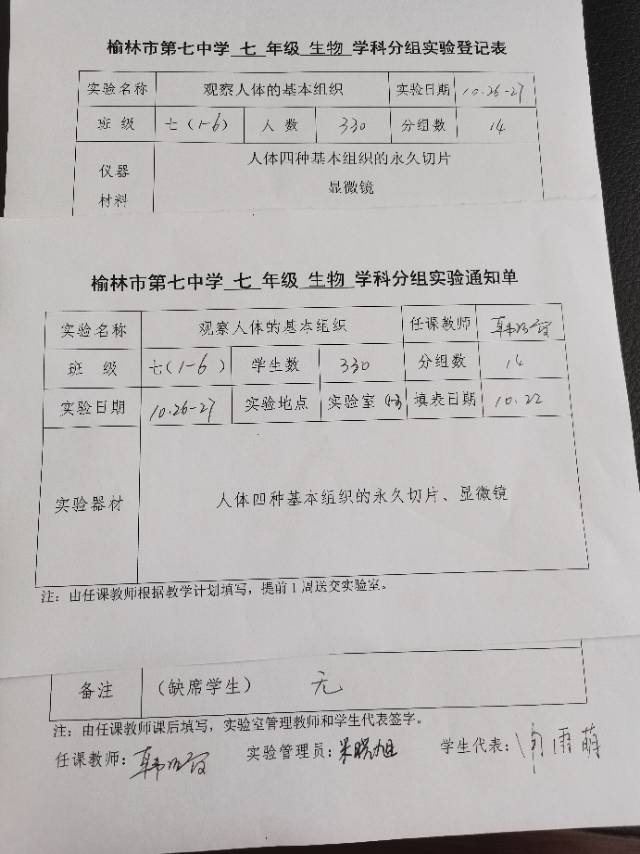 榆林市第七中学 七 年级 生物 学科分组实验登记表
实验名称 观察人体的基本组织 实验日期 10.26-27
班 级 七(1-6) 人 数 330 分组数 14
仪器 人体四种基本组织的永久切片
材料 显微镜
榆林市第七中学 七 年级 生物 学科分组实验通知单
实验名称 观察人体的基本组织 任课教师
班 级 七(1-6) 学生数 330 分组数 14
实验日期 10.26-27 实验地点 实验室 填表日期 10.22
实验器材 人体四种基本组织的永久切片、显微镜
注:由任课教师根据教学计划填写,提前1周送交实验室。
备注 (缺席学生) 无
注:由任课教师课后填写,实验室管理教师和学生代表签字。
任课教师: 实验管理员: 学生代表: 雨萌